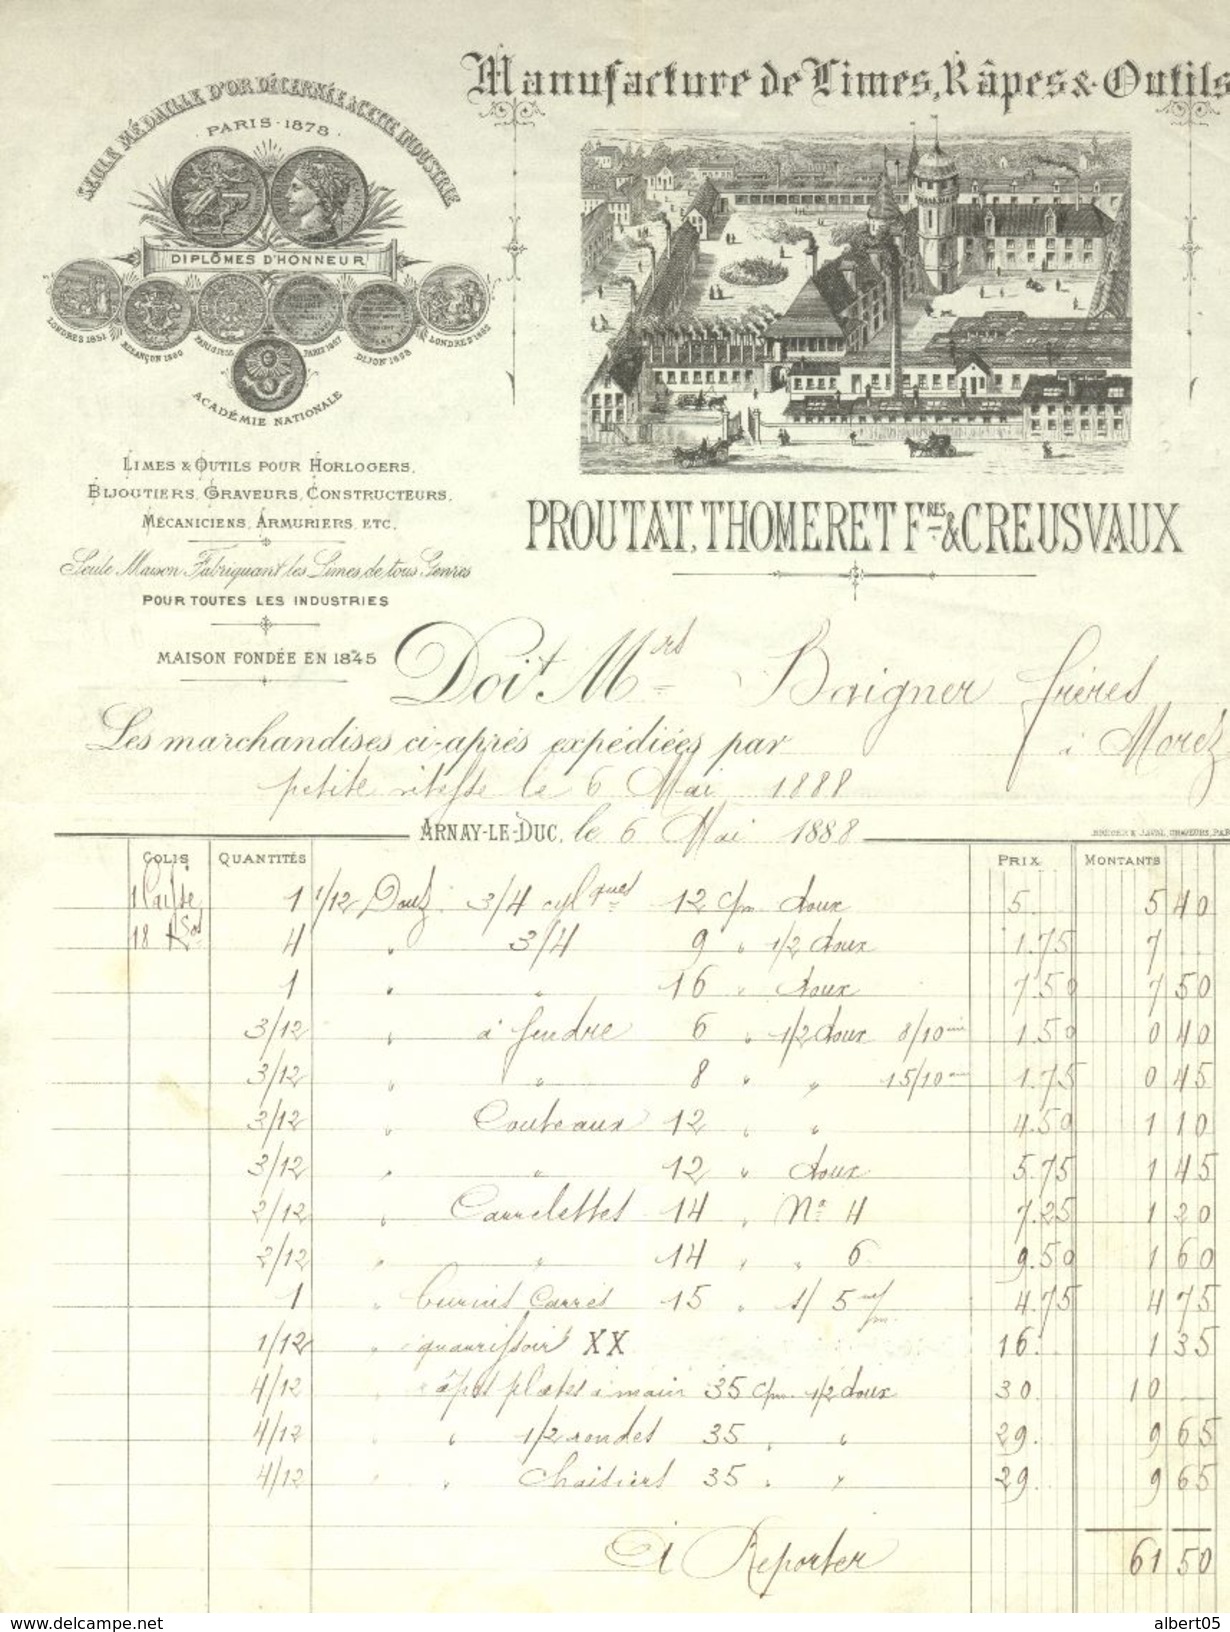 Manufacture de Limes, Râpes & Outils
SEULE MÉDAILLE D'OR DÉCERNÉE À CETTE INDUSTRIE
PARIS · 1878
DIPLÔMES D'HONNEUR
LONDRES 1851
BESANÇON 1860
PARIS 1855
PARIS 1867
DIJON 1858
LONDRES 1862
ACADÉMIE NATIONALE
LIMES & OUTILS POUR HORLOGERS,
BIJOUTIERS, GRAVEURS, CONSTRUCTEURS,
MÉCANICIENS, ARMURIERS, ETC.
Seule Maison Fabriquant les Limes de tous Genres
POUR TOUTES LES INDUSTRIES
MAISON FONDÉE EN 1845
PROUTAT, THOMERET FRES & CREUSVAUX
Doit Mrs Baigner frères
Les marchandises ci-après expédiées par à Morez
petite vitesse le 6 Mai 1888
ARNAY-LE-DUC, le 6 Mai 1888
COLIS QUANTITÉS PRIX MONTANTS
1 Caisse 1 1/12 Douz. 3/4 cylques 12 c/m doux 5. 5 40
18 Kos 4 " 3/4 9 " 1/2 doux 1.75 7
1 " " 16 " doux 7.50 7 50
3/12 " à fendre 6 " 1/2 doux 8/10 1.50 0 40
3/12 " " 8 " " 15/10 1.75 0 45
3/12 " Couteaux 12 " " 4.50 1 10
3/12 " " 12 " doux 5.75 1 45
2/12 " Carrelettes 14 " No 4 7.25 1 20
2/12 " " 14 " " 6 9.50 1 60
1 " burins carrés 15 " s/ 5 m/m 4.75 4 75
1/12 " équarrissoirs XX 16. 1 35
4/12 " râpes plates à main 35 c/m 1/2 doux 30. 10
4/12 " " 1/2 rondes 35 " " 29. 9 65
4/12 " " Chaisiers 35 " " 29. 9 65
À Reporter 61 50
www.delcampe.net
albert05